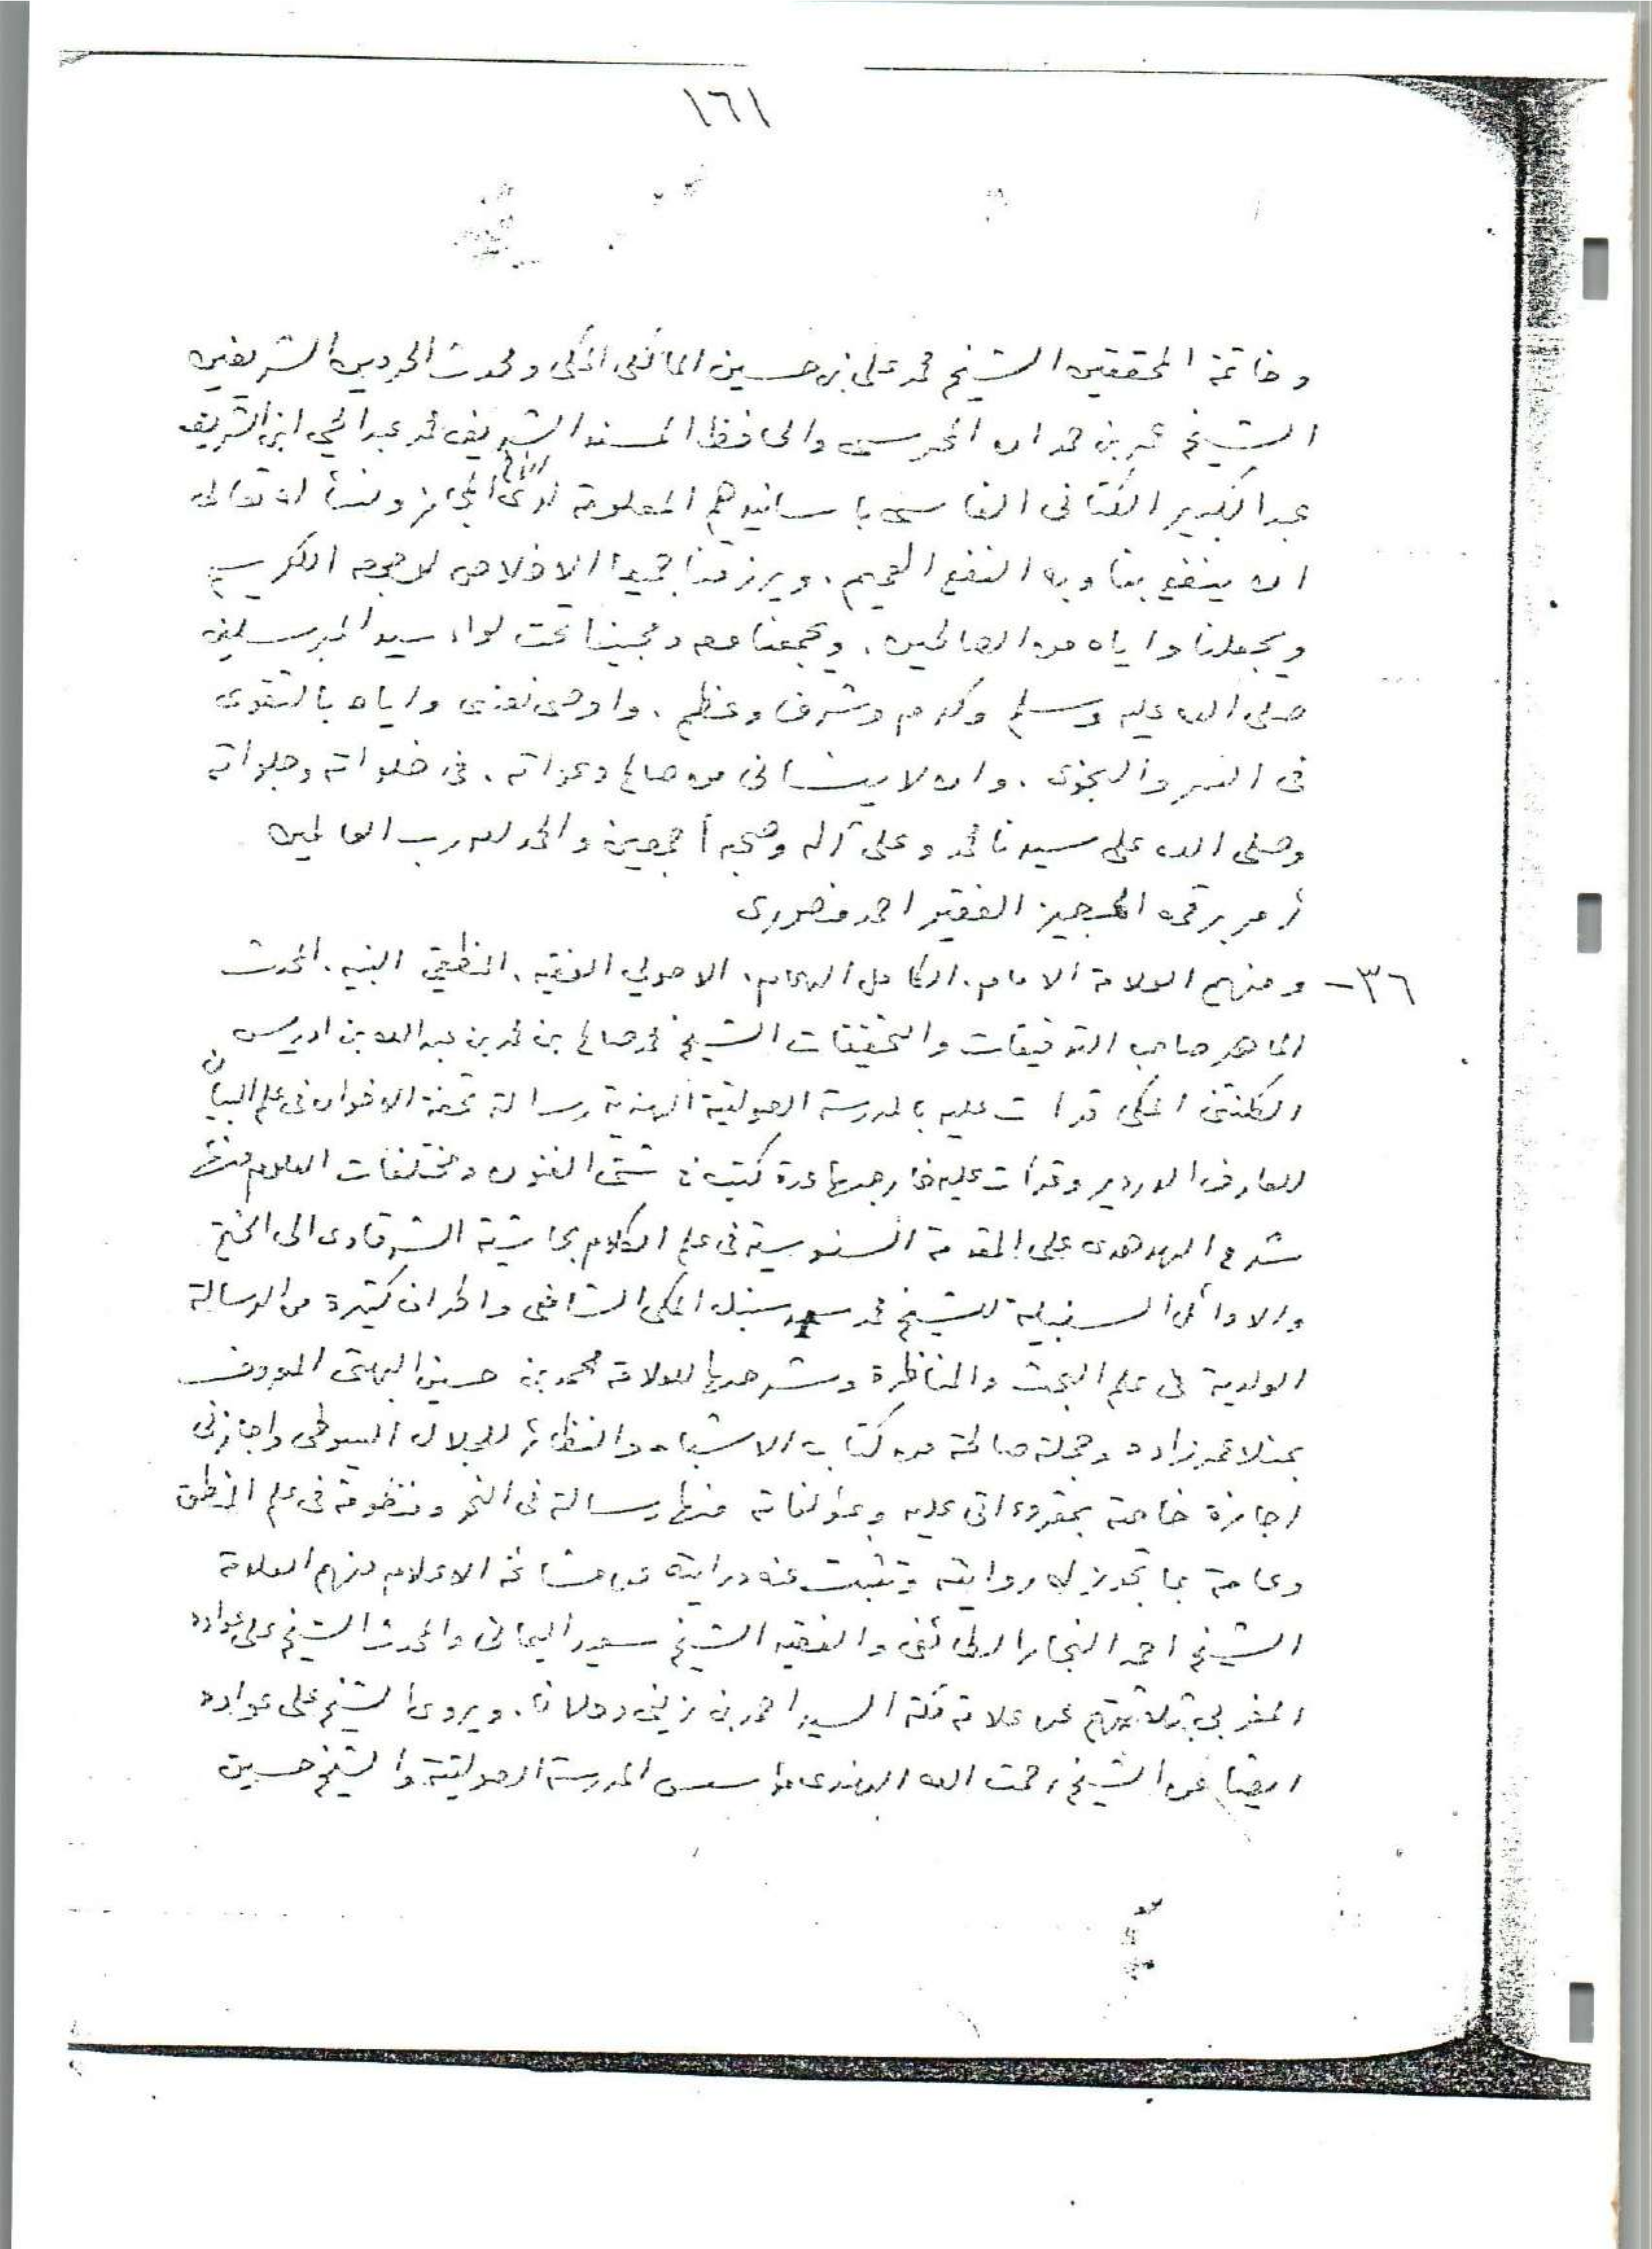 ١٦١
وخاتمة المحققين الشيخ محمد علي بن حسين المالكى المكى ومحدث الحرمين الشريفين
الشيخ عمر بن حمدان المحرسى والحافظ المسند الشريف محمد عبد الحي ابن الشريف
عبد الكبير الكتانى الفاسى باسانيدهم المعلومة لدى المجاز ونسأله تعالى
ان ينفع بنا وبه النفع العميم. ويرزقنا جميعا الاخلاص لوجهه الكريم
ويجعلنا واياه من الصالحين. ويجمعنا معه ومحبينا تحت لواء سيد المرسلين
صلى الله عليه وسلم وكرم وشرف وعظم. واوصى نفسى واياه بالتقوى
فى السر والنجوى. وان لا ينسانى من صالح دعواته. فى خلواته وجلواته
وصلى الله على سيدنا محمد وعلى آله وصحبه أجمعين والحمد لله رب العالمين
أمر برقمه المجيز الفقير احمد منصورى
٣٦- ومنهم العلامة الامام. الكامل الهمام. الاصولي الفقيه. المنطقي النبيه. المحدث
الماهر صاحب التدقيقات والتحقيقات الشيخ محمد صالح بن محمد بن عبد الله بن ادريس
الكلنتنى المكى قرات عليه بالمدرسة الصولتية الهندية رسالة تحفة الاخوان فى علم البيان
للعارف الدردير وقرأت عليه خارجها عدة كتب فى شتى الفنون ومختلفات العلوم منها
شرح الهدهدى على المقدمة السنوسية فى علم الكلام بحاشية الشرقاوى الى الختم
والاوائل السنبلية للشيخ محمد سعيد سنبل المكى الشافعى واطراف كثيرة من الرسالة
الولدية فى علم البحث والمناظرة وشرحها للعلامة محمد بن حسين البهتى المعروف
بمنلا عمر زاده وجملة صالحة من كتاب الاشباه والنظائر للجلال السيوطى واجازنى
اجازة خاصة بمقروءاتى عليه وبمؤلفاته منها رسالة فى النحو ومنظومة فى علم المنطق
وعامة بما تجوز له روايته وتثبت عنه درايته عن مشائخه الاعلام منهم العلامة
الشيخ احمد النجار الطائفى والفقيه الشيخ سعيد اليمانى والمحدث الشيخ على عواده
المغربي بثلاثتهم عن علامة مكة السيد احمد بن زينى دحلان. ويروى الشيخ على عواده
ايضا عن الشيخ رحمت الله الهندى مؤسس المدرسة الصولتية والشيخ حسين